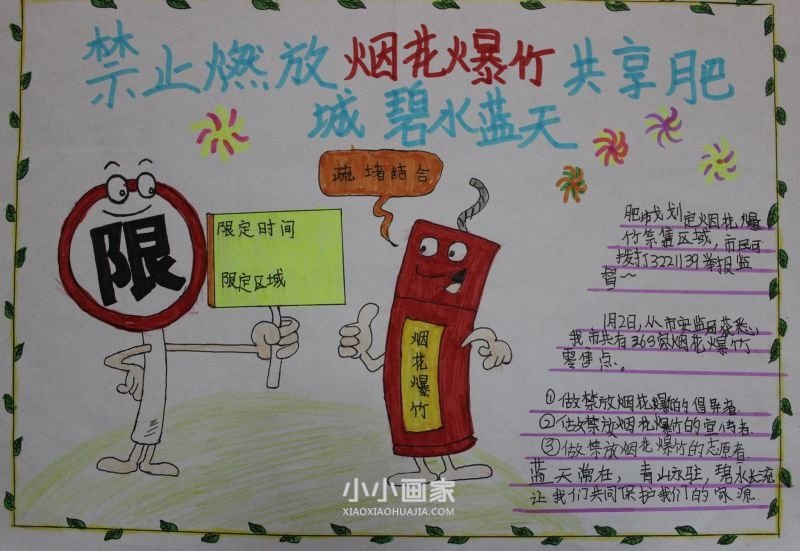 禁止燃放烟花爆竹共享肥
城碧水蓝天
疏堵结合
限
限定时间
限定区域
烟花爆竹
肥城划定烟花爆
竹禁售区域,市民可
拨打3221139举报监
督~
1月2日,从市安监局获悉,
我市共有363家烟花爆竹
零售点。
①做禁放烟花爆竹的倡导者.
②做禁放烟花爆竹的宣传者.
③做禁放烟花爆竹的志愿者.
蓝天常在,青山永驻,碧水长流
让我们共同保护我们的家源.
小小画家
XIAOXIAOHUAJIA.COM